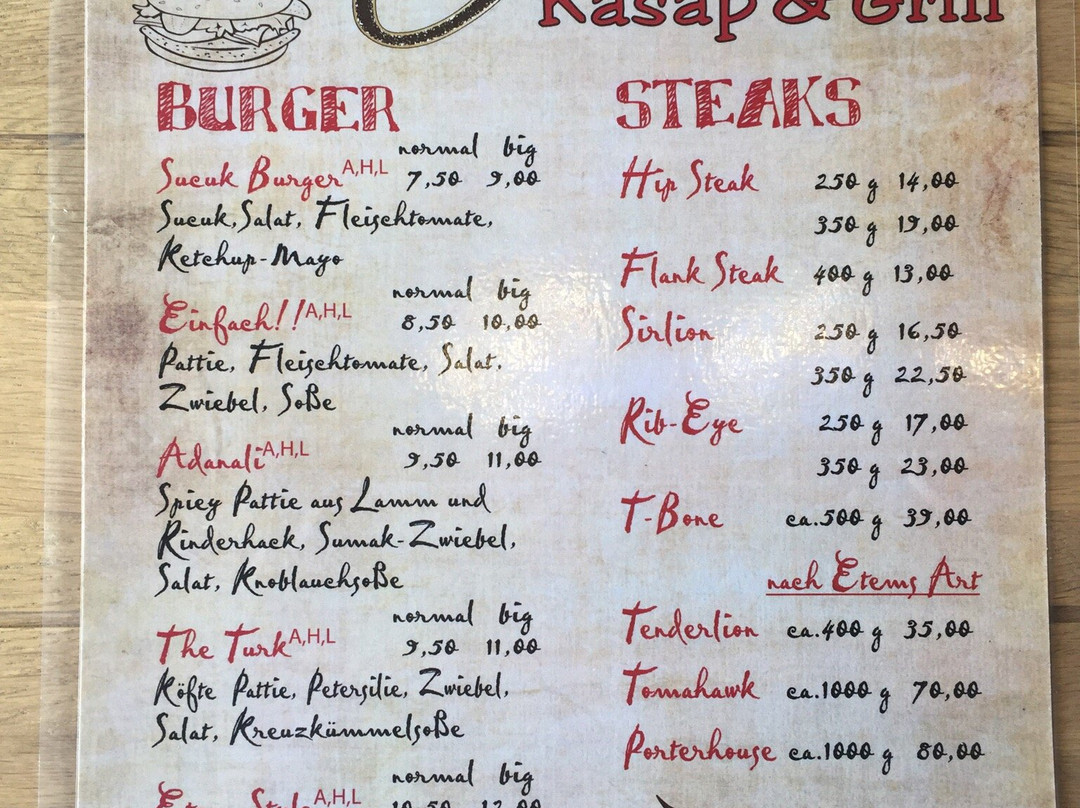 Kasap & Grill
BURGER
normal big
Sucuk Burger A,H,L 7,50 9,00
Sucuk, Salat, Fleischtomate,
Ketchup-Mayo
normal big
Einfach!! A,H,L 8,50 10,00
Pattie, Fleischtomate, Salat,
Zwiebel, Soße
normal big
Adanali A,H,L 9,50 11,00
Spicy Pattie aus Lamm und
Rinderhack, Sumak-Zwiebel,
Salat, Knoblauchsoße
normal big
The Turk A,H,L 9,50 11,00
Köfte Pattie, Petersilie, Zwiebel,
Salat, Kreuzkümmelsoße
normal big
A,H,L
STEAKS
Hip Steak 250 g 14,00
350 g 19,00
Flank Steak 400 g 13,00
Sirlion 250 g 16,50
350 g 22,50
Rib-Eye 250 g 17,00
350 g 23,00
T-Bone ca.500 g 39,00
nach Etems Art
Tenderlion ca.400 g 35,00
Tomahawk ca.1000 g 70,00
Porterhouse ca.1000 g 80,00